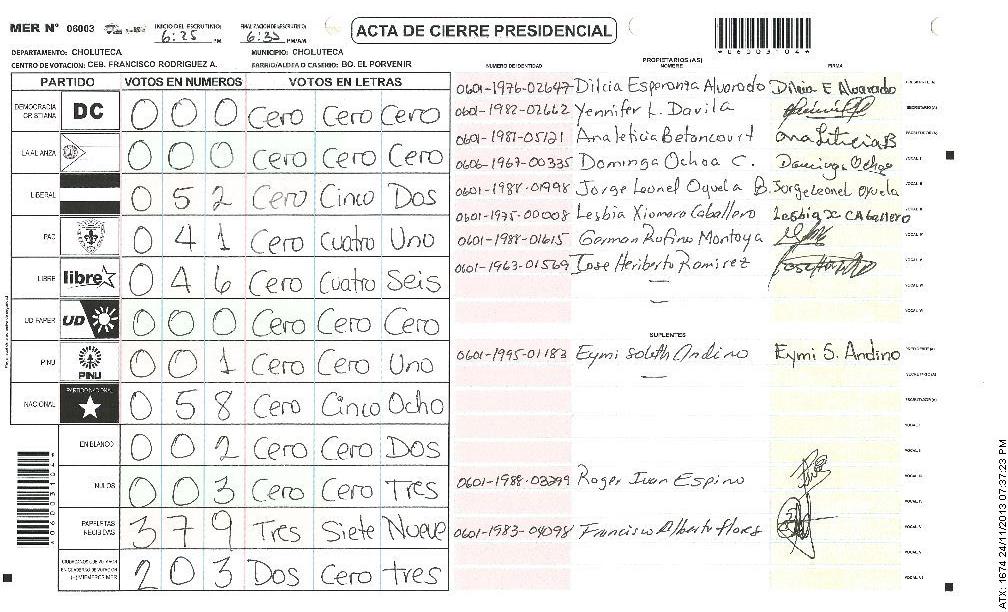 MER N° 06003
INICIO DEL ESCRUTINIO: 6:25 PM
FINALIZACION DE ESCRUTINIO: 6:35 PM/AM
ACTA DE CIERRE PRESIDENCIAL
*06003104*
DEPARTAMENTO: CHOLUTECA MUNICIPIO: CHOLUTECA
CENTRO DE VOTACION: CEB. FRANCISCO RODRIGUEZ A. BARRIO/ALDEA O CASERIO: BO. EL PORVENIR
PARTIDO VOTOS EN NUMEROS VOTOS EN LETRAS
DEMOCRACIA CRISTIANA DC 0 0 0 Cero Cero Cero
LA ALIANZA 0 0 0 Cero Cero Cero
LIBERAL 0 5 2 Cero Cinco Dos
PAC 0 4 1 Cero Cuatro Uno
LIBRE libre 0 4 6 Cero Cuatro Seis
UD FAPER UD 0 0 0 Cero Cero Cero
PINU PINU 0 0 1 Cero Cero Uno
NACIONAL PARTIDO NACIONAL 0 5 8 Cero Cinco Ocho
EN BLANCO 0 0 2 Cero Cero Dos
NULOS 0 0 3 Cero Cero Tres
PAPELETAS RECIBIDAS 3 7 9 Tres Siete Nueve
2 0 3 Dos Cero tres
PROPIETARIOS (AS)
NUMERO DE IDENTIDAD NOMBRE FIRMA
0601-1976-02647 Dilcia Esperanza Alvarado Dilcia E Alvarado
0601-1982-02662 Yennifer L. Davila
0601-1981-05121 Ana leticia Betancourt Ana Leticia B
0606-1967-00335 Dominga Ochoa C. Dominga Ochoa
0601-1988-01998 Jorge Leonel Oquela B. Jorge Leonel Oquela
0601-1975-00008 Lesbia Xiomara Caballero Lesbia X CAballero
0601-1988-01615 German Rufino Montoya
0601-1963-01569 Jose Heriberto Ramirez
SUPLENTES
0601-1995-01183 Eymi Andino Eymi S. Andino
0601-1988-03299 Roger Ivan Espino
0601-1983-04098 Francisco Alberto Flores
*06003104*
ATX: 1674 24/11/2013 07:37:23 PM